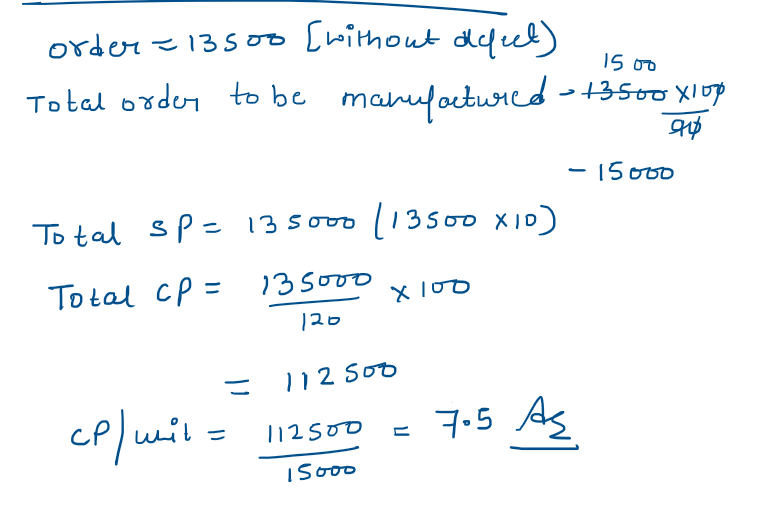 order = 13500 [without defect)
1500
Total order to be manufactured - 13500 x100
90
- 15000
Total SP = 135000 (13500 x10)
Total CP = 135000 x 100
120
= 112500
CP/unit = 112500 = 7.5 Ans
15000